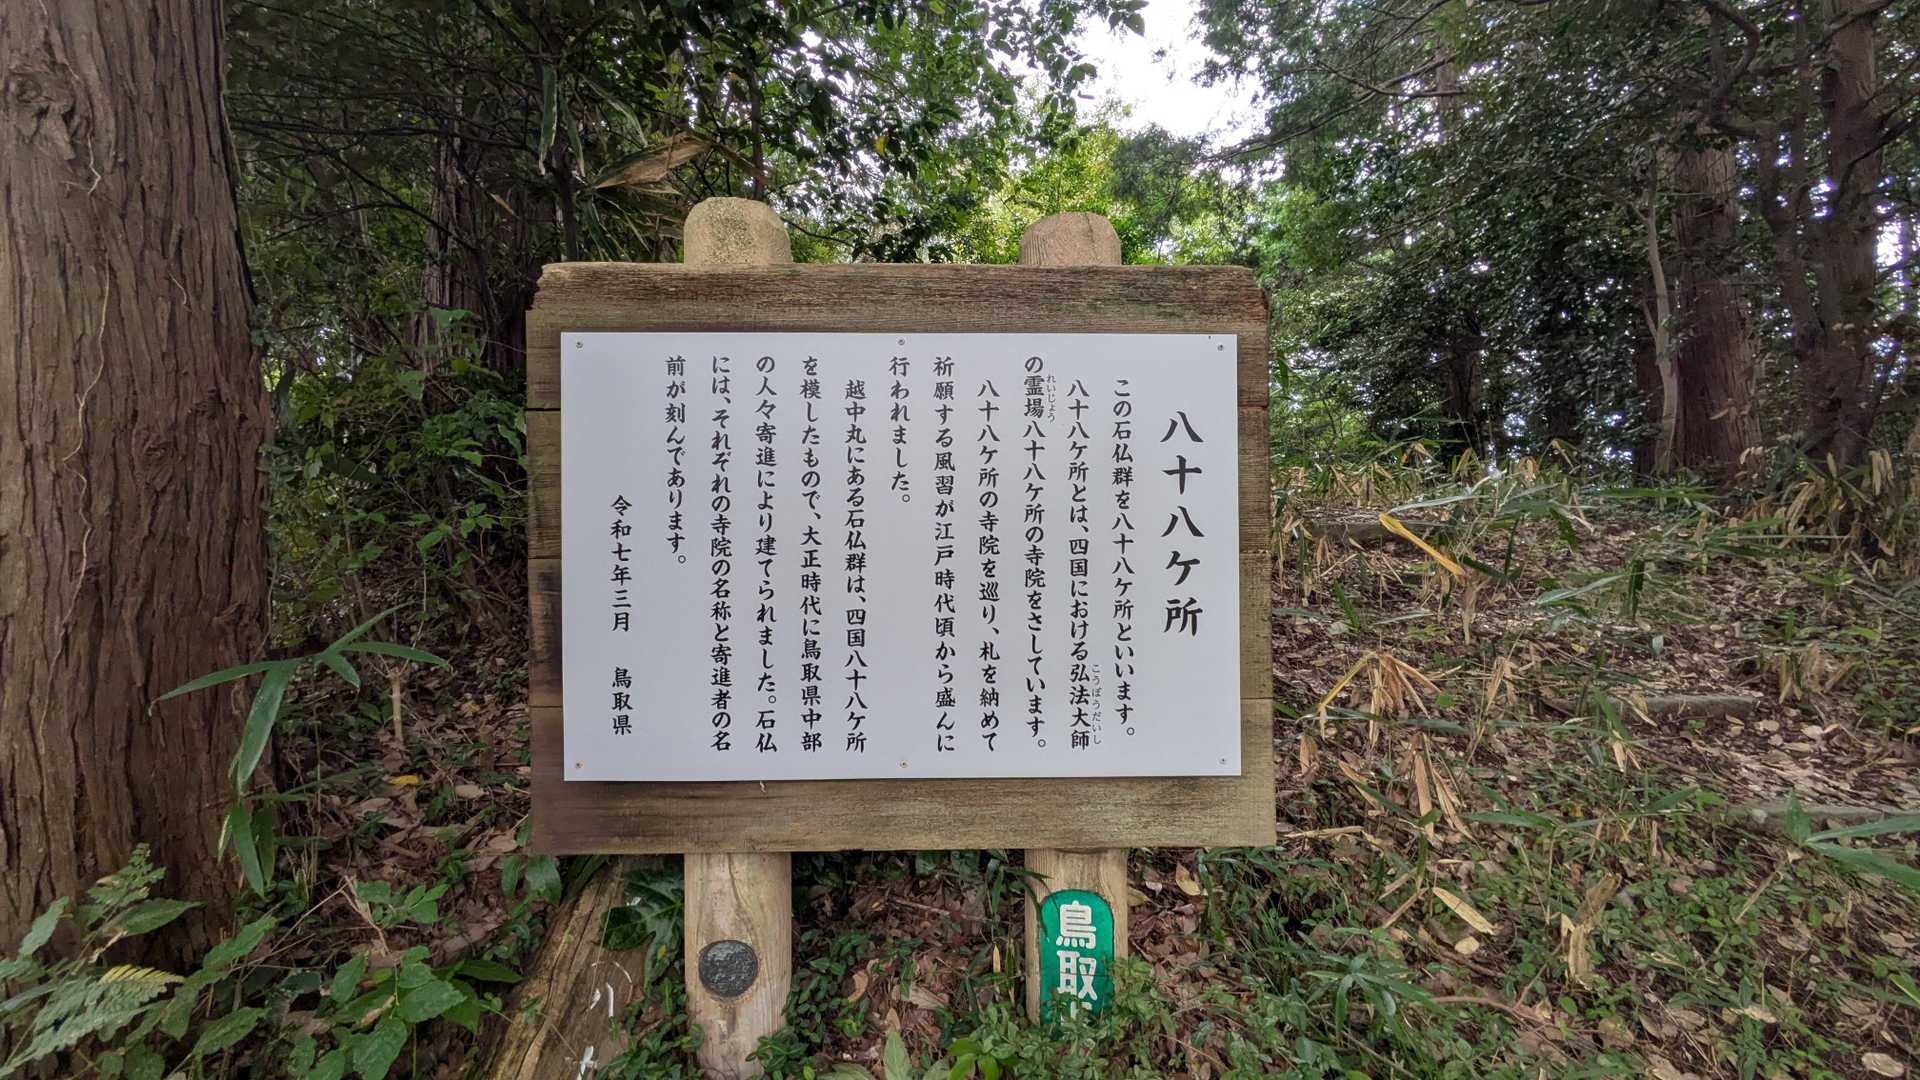 八十八ケ所
この石仏群を八十八ケ所といいます。
八十八ケ所とは、四国における弘法大師
こうぼうだいし
の霊場八十八ケ所の寺院をさしています。
れいじょう
八十八ケ所の寺院を巡り、札を納めて
祈願する風習が江戸時代頃から盛んに
行われました。
越中丸にある石仏群は、四国八十八ケ所
を模したもので、大正時代に鳥取県中部
の人々寄進により建てられました。石仏
には、それぞれの寺院の名称と寄進者の名
前が刻んであります。
令和七年三月 鳥取県
鳥取